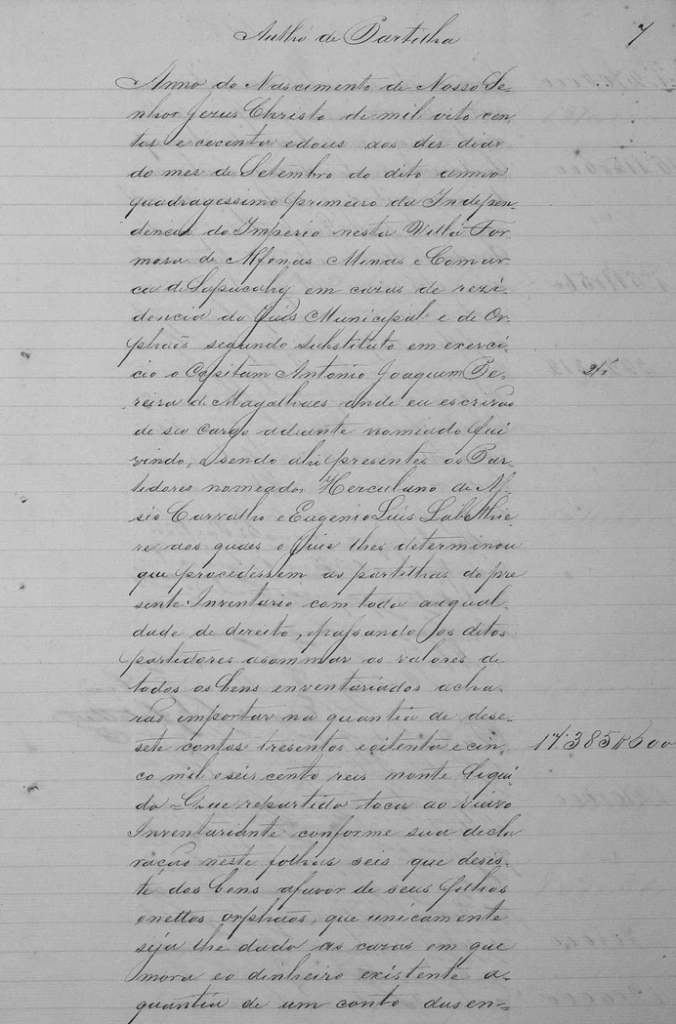 Autho de Partilha
7
Anno do Nascimento de Nosso Se-
nhor Jezus Christo de mil oito cen-
tos e cecenta edous aos des dias
do mes de Setembro do dito anno
quadragessimo primeiro da Indepen-
dencia do Imperio nesta Villa For-
mosa de Alfenas Minas e Comar-
ca de Sapucahy em cazas de rezi-
dencia do Juis Municipal e de Or-
phaõs segundo substituto em exerci-
cio o Capitam Antonio Joaquim Pe-
reira de Magalhaes onde eu escrivaõ
de seu cargo adiante nomiado fui
vindo, e sendo ahi presentes os Par-
tidores nomeados Herculano de
Carvalho e Eugenio Luis
re aos quaes o Juis lhes determinou
que procedessem as partilhas do pre
sente Inventario com toda aegual-
dade de direito, epassando os ditos
partidores asommar os valores de
todos os bens enventariados acha-
raõ importar na quantia de dese-
sete contos tresentos eoitenta ecin-
17:385#600
co mil eseis cento reis monte liqui
do Que repartido toca ao viuvo
Inventariante conforme sua decla
raçaõ neste folhas seis que desis-
te dos bens afavor de seus filhos
enettos orphaõs, que unicamente
seja lhe dado as cazas em que
mora eo dinheiro existente a-
quantia de um conto dusen-